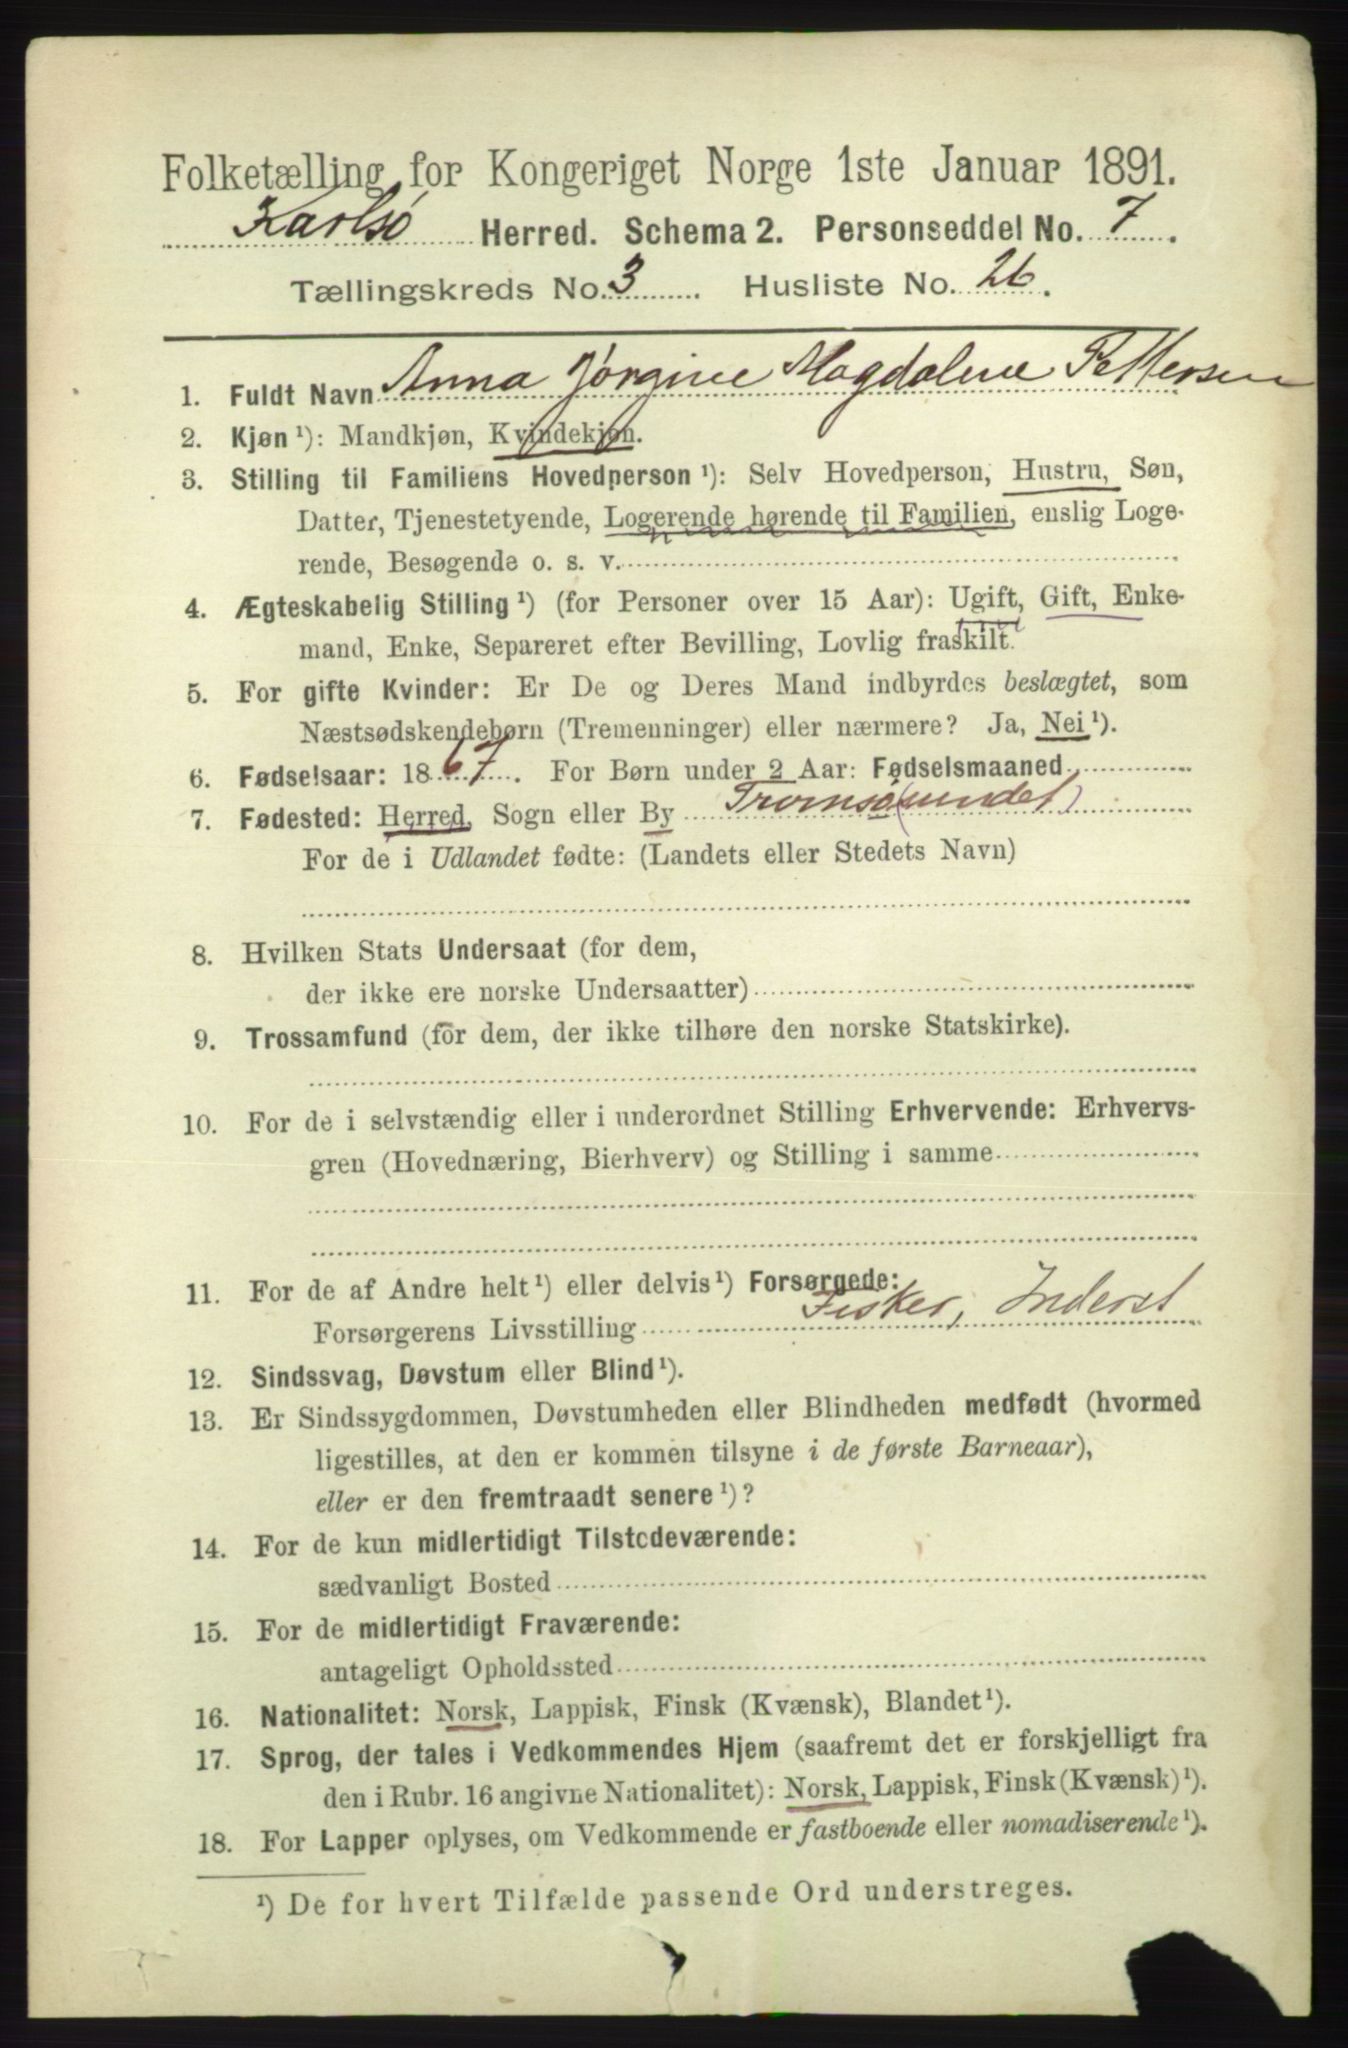 Folketælling for Kongeriget Norge 1ste Januar 1891.
Karlsø Herred. Schema 2. Personseddel No. 7.
Tællingskreds No. 3. Husliste No. 26.
1. Fuldt Navn Anna Jørgine Magdalene Pettersen
2. Kjøn ¹): Mandkjøn, Kvindekjøn.
3. Stilling til Familiens Hovedperson ¹): Selv Hovedperson, Hustru, Søn,
Datter, Tjenestetyende, Logerende hørende til Familien, enslig Loge-
rende, Besøgende o. s. v.
4. Ægteskabelig Stilling ¹) (for Personer over 15 Aar): Ugift, Gift, Enke-
mand, Enke, Separeret efter Bevilling, Lovlig fraskilt.
5. For gifte Kvinder: Er De og Deres Mand indbyrdes beslægtet, som
Næstsødskendebørn (Tremenninger) eller nærmere? Ja, Nei ¹).
6. Fødselsaar: 1867. For Børn under 2 Aar: Fødselsmaaned
7. Fødested: Herred, Sogn eller By Tromsø(sundet)
For de i Udlandet fødte: (Landets eller Stedets Navn)
8. Hvilken Stats Undersaat (for dem,
der ikke ere norske Undersaatter)
9. Trossamfund (for dem, der ikke tilhøre den norske Statskirke).
10. For de i selvstændig eller i underordnet Stilling Erhvervende: Erhvervs-
gren (Hovednæring, Bierhverv) og Stilling i samme
11. For de af Andre helt ¹) eller delvis ¹) Forsørgede:
Forsørgerens Livsstilling Fisker, Inderst
12. Sindssvag, Døvstum eller Blind ¹).
13. Er Sindssygdommen, Døvstumheden eller Blindheden medfødt (hvormed
ligestilles, at den er kommen tilsyne i de første Barneaar),
eller er den fremtraadt senere ¹)?
14. For de kun midlertidigt Tilstedeværende:
sædvanligt Bosted
15. For de midlertidigt Fraværende:
antageligt Opholdssted
16. Nationalitet: Norsk, Lappisk, Finsk (Kvænsk), Blandet ¹).
17. Sprog, der tales i Vedkommendes Hjem (saafremt det er forskjelligt fra
den i Rubr. 16 angivne Nationalitet): Norsk, Lappisk, Finsk (Kvænsk) ¹).
18. For Lapper oplyses, om Vedkommende er fastboende eller nomadiserende ¹).
¹) De for hvert Tilfælde passende Ord understreges.